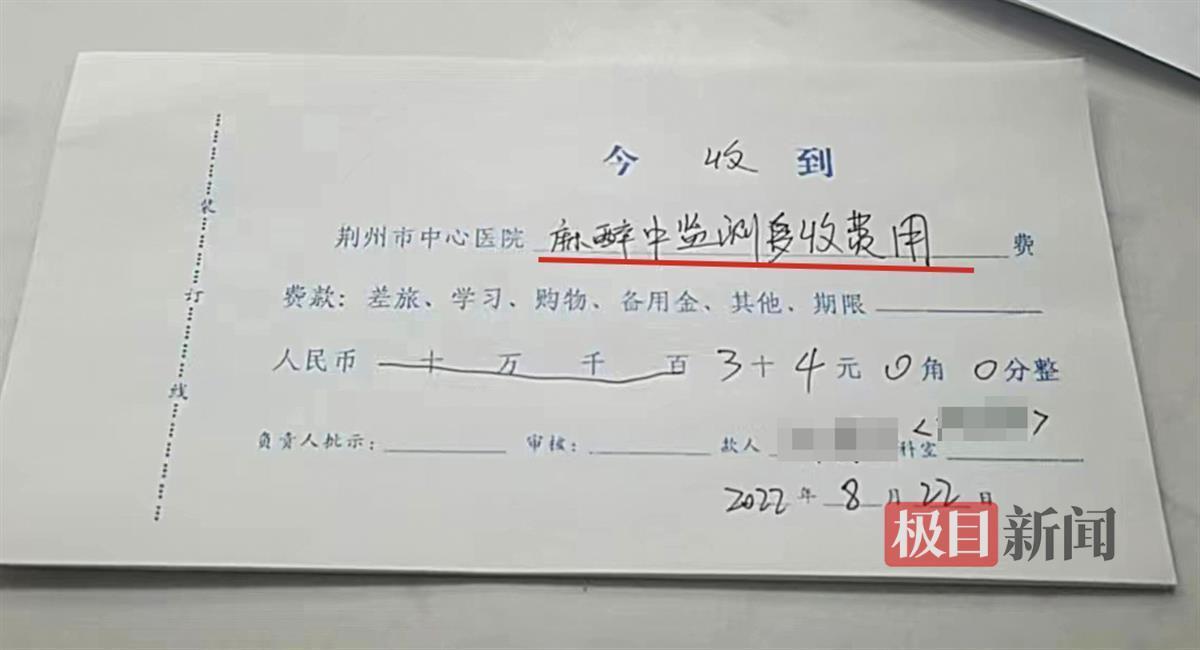 今收到
荆州市中心医院 麻醉中监测多收费用 费
费款：差旅、学习、购物、备用金、其他、期限
人民币 十 万 千 百 3十4元0角0分整
负责人批示： 审核： 款人 科室 < >
2022年8月22日
装订线
极目新闻